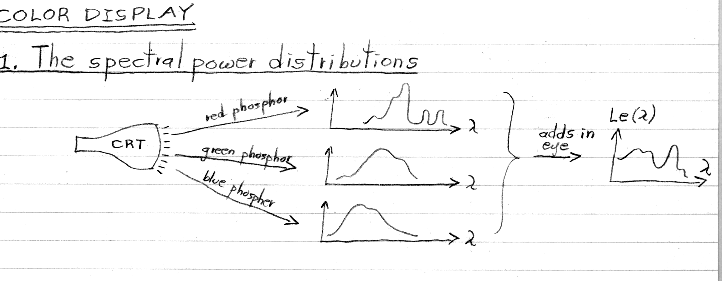 COLOR DISPLAY
1. The spectral power distributions
red phosphor
λ
CRT
green phosphor
λ
blue phosphor
λ
adds in
eye
Le(λ)
λ